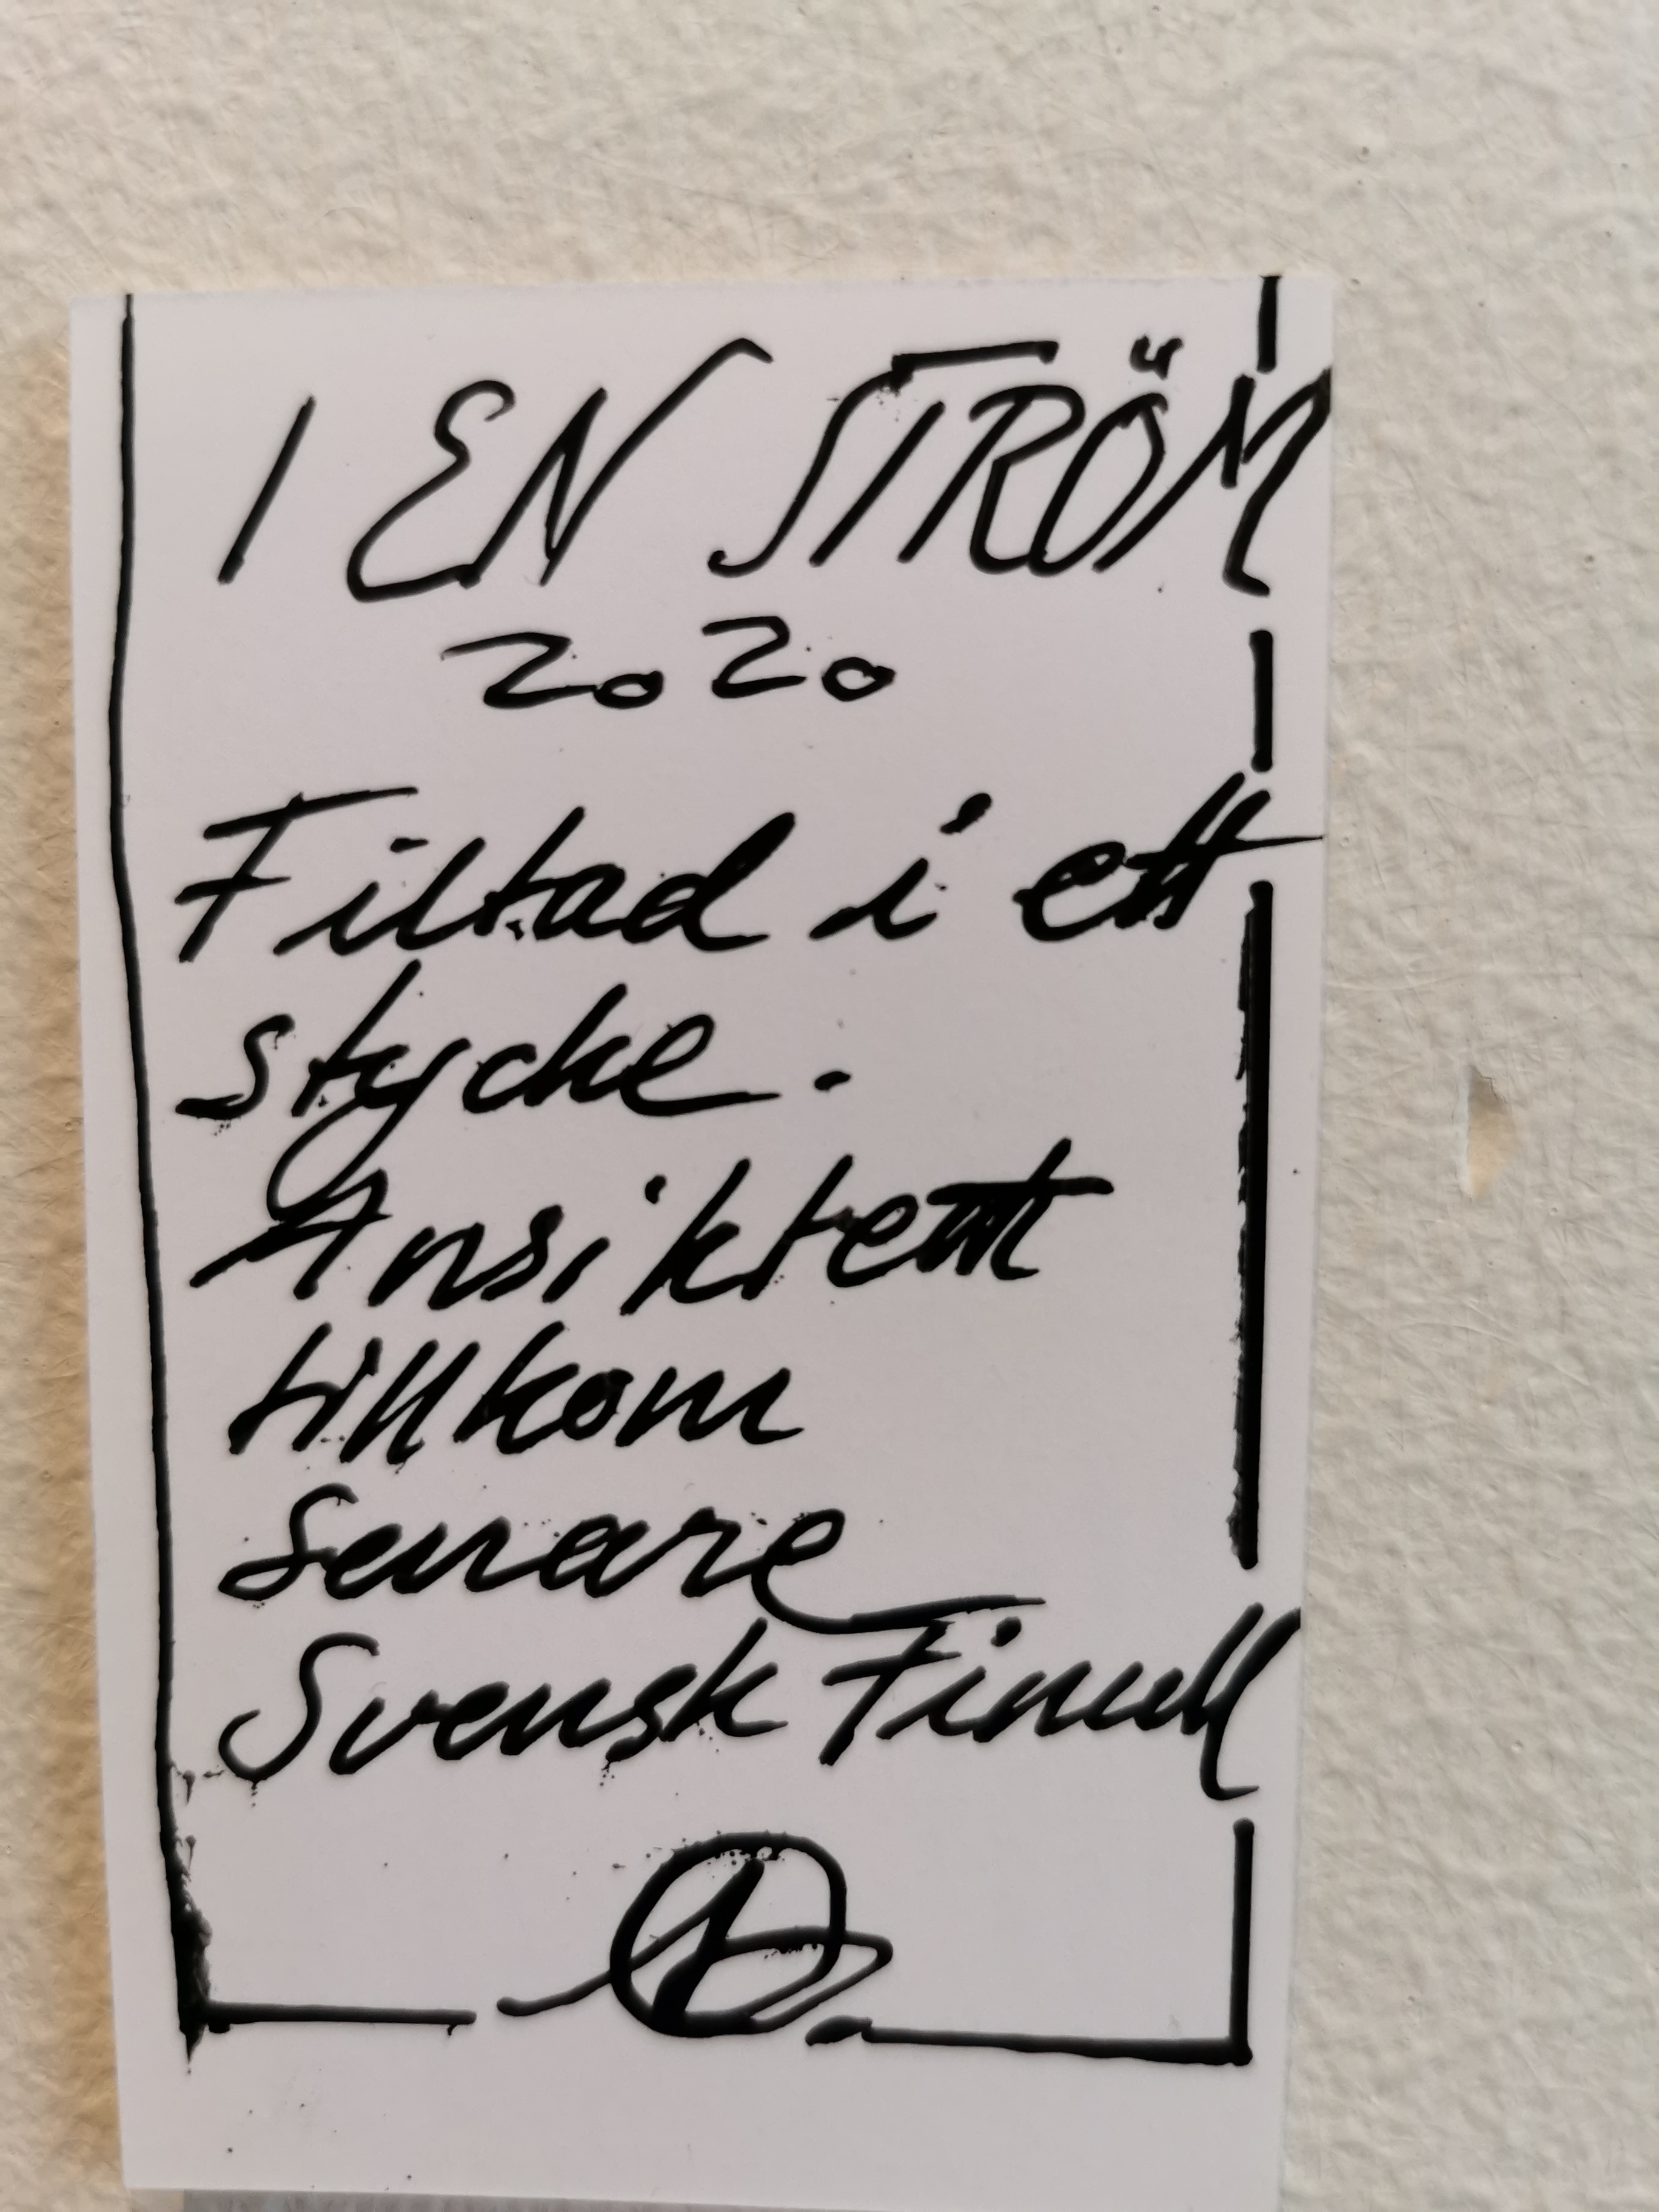 I EN STRÖM
2020
Filtad i ett
stycke.
Ansiktett
tillkom
senare
Svensk Finull